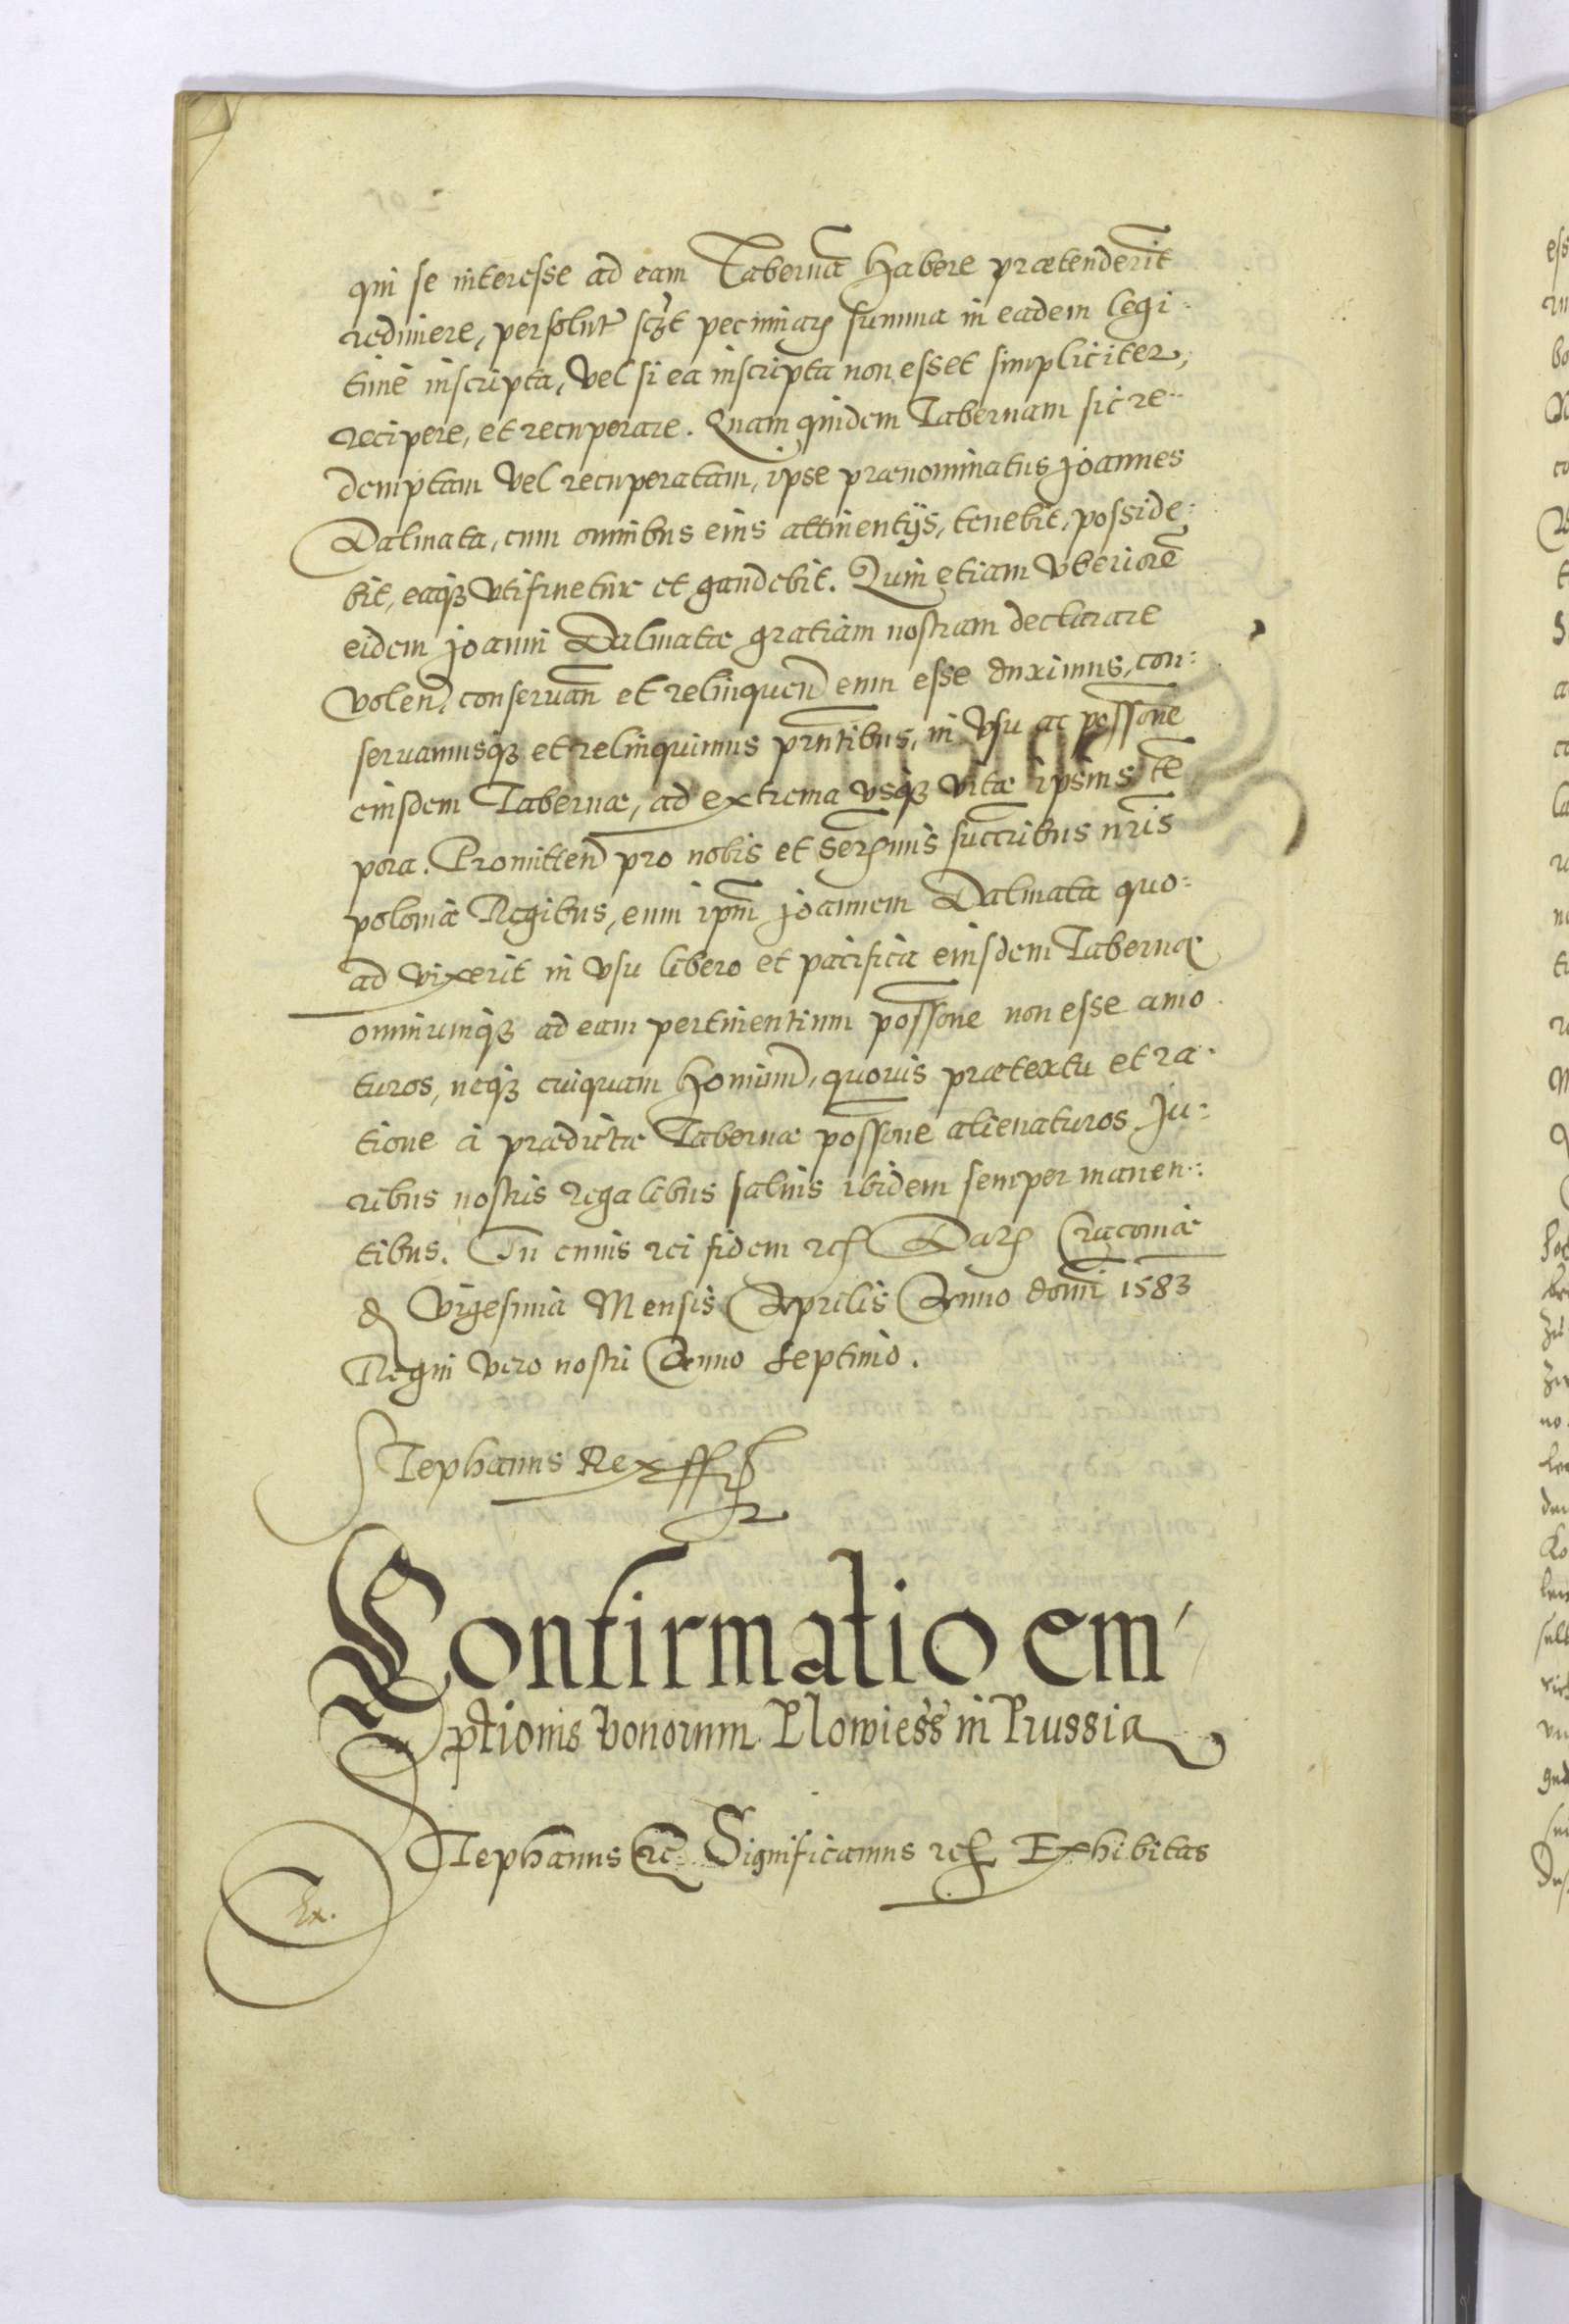 qui se interesse ad eam Tabernã habere prætenderĩt
redimere, persolut scʒt pecuniarʒ summa in eadem legi-
timè inscripta, vel si ea inscripta non esset simpliciter,
recipere, et recuperare. Quam quidem Tabernam sic re-
demptam vel recuperatam, ipse prænominatus Joannes
Dalmata, cum omnibus eius attinentijs, tenebit, posside:
bit, eaqʒ utifruetur et gaudebit. Quin etiam uberiorẽ
eidem Joanni Dalmatæ gratiam nostram declarare
volen, conseruañ et relinquen eum esse duximus, con:
seruamusqʒ et relinquimus prñtibus, in usu ac possone
eiusdem Tabernæ, ad extrema usqʒ vitæ ipsius tẽ
pora. Promitten pro nobis et Serʒmis succribus nr̃is
poloniæ Regibus, eum ipm̃ Joannem Dalmata quo:
ad vixerit in usu libero et pacifica eiusdem Tabernæ
omniumqʒ ad eam pertinentium possone non esse amo
turos, neqʒ cuiquam hominũ, quouis prætextu et ra-
tione à prædictæ Tabernæ possone alienaturos Ju:
ribus nostris regalibus saluis ibidem semper manen:
tibus. In cuius rei fidem rcʒ Darʒ Cracouiæ
d Vigesima Mensis Aprilis Anno domi 1583
Regni vero nostri Anno Septimo.
Stephanus Rex
Confirmatio em
ptionis bonorum Plowiess in Prussia
Stephanus rc Significamus rcʒ Exhibitas
Ex.